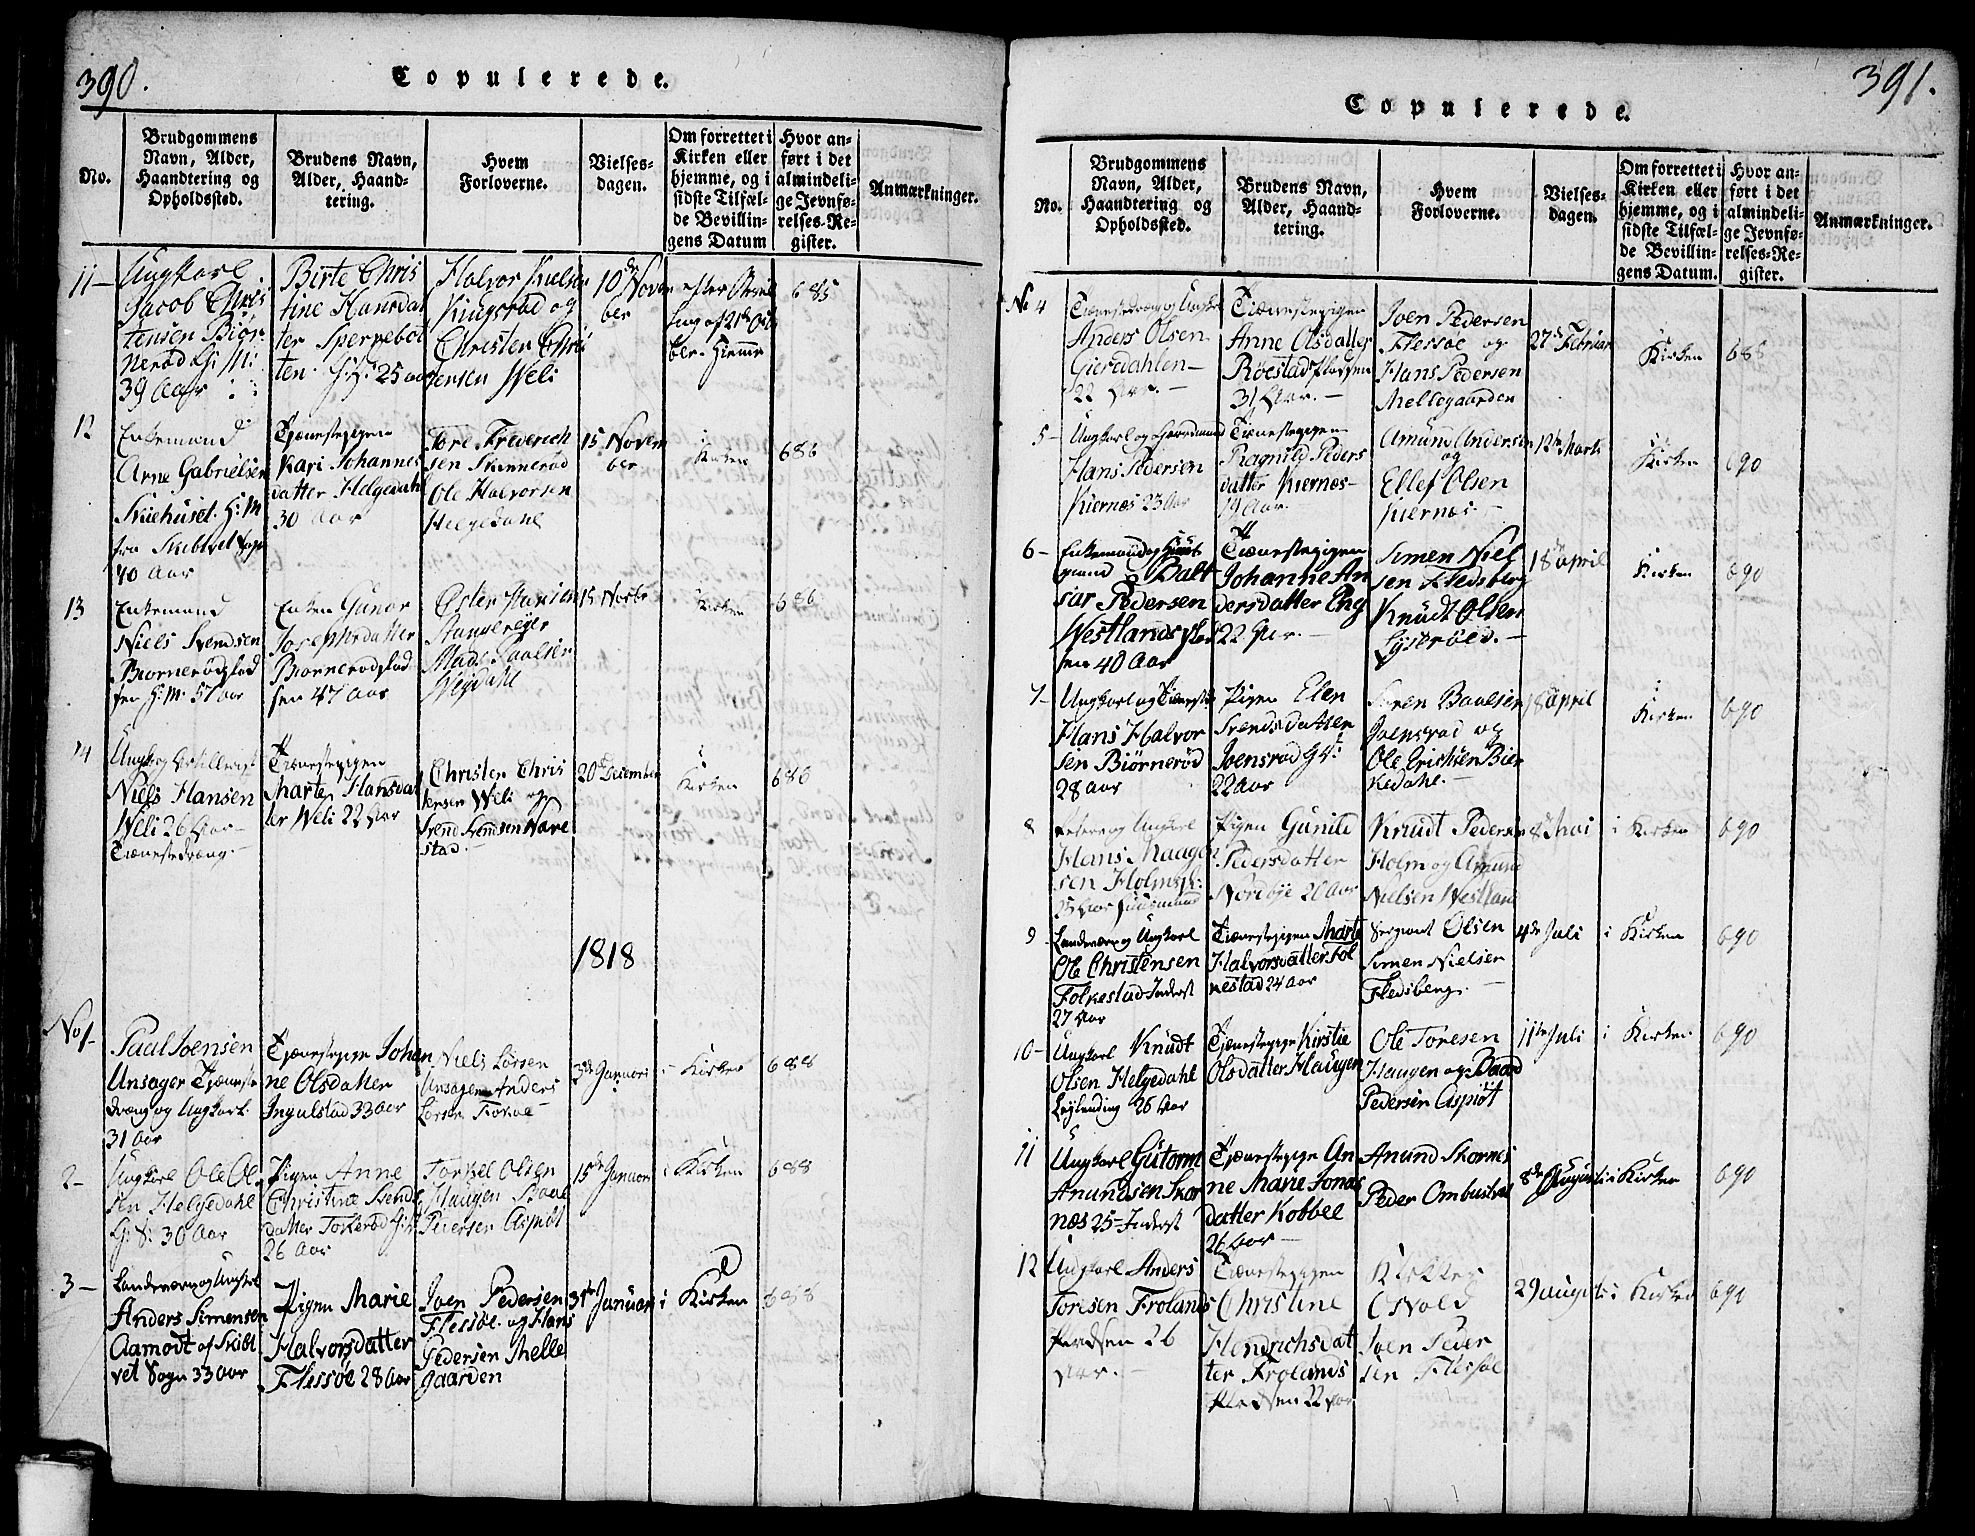 390.
Copulerede.
No.
Brudgommens
Navn, Alder,
Haandtering og
Opholdssted.
Brudens Navn,
Alder, Haand-
tering.
Hvem
Forloverne.
Vielses-
dagen.
Om forrettet i
Kirken eller
hjemme, og i
sidste Tilfæl-
de Bevillin-
gens Datum
Hvor an-
ført i det
almindeli-
ge Jevnfø-
relses-Re-
gister.
Anmærkninger.
11 —
Ungkarl
Jacob Chris
tensen Biør
nerød G: M:
39 Aar
Birte Chris
tine Hansdat
ter Sperrebot
ten. 25 aar
Halvor
og
Christen Chris
tensen Weli
10de Novem
ber
efter
Hiemme
685
12
Enkemand
Arne Gabrielsen
Skuehuset. H: M
fra Skibtvet Sogn
40 Aar
Tjenestepigen
Kari Johannes
datter Helgedahl
30 Aar
Tore Frederich
sen Skinnerød
Ole Halvorsen
Helgedahl
15 Novem
ber
i
Kirken
686
13
Enkemand
Niels Svendsen
Biørnerødplad
sen H: M. 57 aar
Enken Gunor
Josephsdatter
Biørnerødplad
sen 47 Aar
Mads Paulsen
15 Novbr
i
Kirken
686
14
Ungk og
Niels Hansen
Weli 26 Aar
Tienestedreng.
Tienestepigen
Marte Hansdat
ter Weli 22 Aar
Christen Chris
tensen Weli og
Svend Svendsen Nare
stad.
20de December
i
Kirken
686
1818
No 1.
Paul Joensen
Unsager Tjeneste
dreng og Ungkarl
31 Aar
Tjenestepige Johan
ne Olsdatter
Ingulstad 33 Aar
Niels Lorsen
Unsager Anders
Lorsen
3de Januari
i Kirken
688
2 —
Ungkarl Ole Ol
sen Helgedahl
G: S: 30 Aar
Pigen Anne
Christine Svends
datter Torkerød
26 Aar
Torkel Olsen
Haugen
Pedersen Aspiøt
15de Januari
i Kirken
688
3 —
Landeværn og Ungkarl
Anders Simensen
Aamodt af Skibt
vet Sogn 33 Aar
Pigen Marie
Halvorsdatter
Flessøe 28 Aar
Joen Pedersen
Flessøe og Hans
Pedersen Melle
gaarden
31te Januari
i Kirken
688
391.
Copulerede.
No.
Brudgommens
Navn, Alder,
Haandtering og
Opholdssted.
Brudens Navn,
Alder, Haand-
tering.
Hvem
Forloverne.
Vielses-
dagen.
Om forrettet i
Kirken eller
hjemme, og i
sidste Tilfæl-
de Bevillin-
gens Datum.
Hvor an-
ført i det
almindeli-
ge Jevnfø-
relses-Re-
gister.
Anmærkninger.
No 4
Tienestedreng og Ungkl
Anders Olsen
Giersdahlen —
22 Aar. —
Tienestepigen
Anne Olsdatter
Røestad Pladsen
31 Aar. —
Joen Pedersen
Flessøe og
Hans Pedersen
Mellegaarden
27de Februar
i
Kirken
688
5 —
Ungkarl og Gaardmand
Hans Pedersen
Kiernes 23 Aar
Tienestepigen
Ragnild Peders
datter Kiernes
19 Aar.
Amund Andersen
og
Ellef Olsen
Kiernæs. —
12te Marts
i
Kirken
690
6 —
Enkemand og Huus
mand Balt
sar Pedersen
Westlandsplad
sen 40 Aar
Tienestepigen
Johanne An
dersdatter Eng
22 Aar. —
Simen Niel
sen Fledsberg
Knudt Olsen
Lysterøed. —
18 April
i
Kirken
690
7 —
Ungkarl og Tieneste
Hans Halvor
sen Biørnerød
28 Aar
Pigen Elen
Svendsdatter
Joensrød
22 Aar
Søren Baalsen
Joensrød og
Ole Erichsen Bier
kedahl. —
18 April
i
Kirken
690
8
og Ungkarl
Hans Maagen
sen Holms
25 Aar Huusmand
Pigen Gunild
Pedersdatter
Nordbye 20 Aar
Knudt Pedersen
Holm og Amund
Nielsen Westland
8de Mai
i Kirken
690
9
Landeværn og Ungkarl
Ole Christensen
Folkestad Inderst
27 Aar
Tienestepigen Marte
Halvorsdatter Fol
kestad 24 Aar
Sergeant Olsen
Simen Nielsen
Fledsberg. —
4de Juli
i Kirken
690
10 —
Ungkarl Knudt
Olsen Helgedahl
Leylending 26 Aar
Tjenestepige Kirstie
Olsdatter Haugen
Ole Toresen
Haugen og Baard
Pedersen Aspiøt
11te Juli
i Kirken
690
11
Ungkarl Gutorm
Anundsen Skor
næs 25 Inderst
Tjenestepige An
ne Marie Jonas
datter Kobbel
26 Aar —
Anund Skornes
Peder Ombustvet
8de August
i Kirken
690
12
Ungkarl Anders
Toresen Frolands
Pladsen 26
Aar.
Tienestepigen
Christine
Hendrichsdat
ter Frolands
Pladsen 22 Aar
Klokker
Osvold
Joen Peder
sen Flessøe
29 August
i Kirken
690